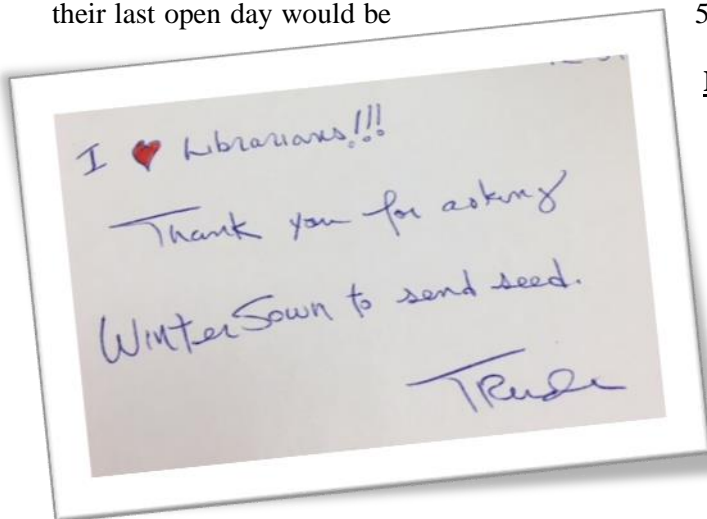 their last open day would be
5
I ❤ Librarians!!!
Thank you for asking
WinterSown to send seed.